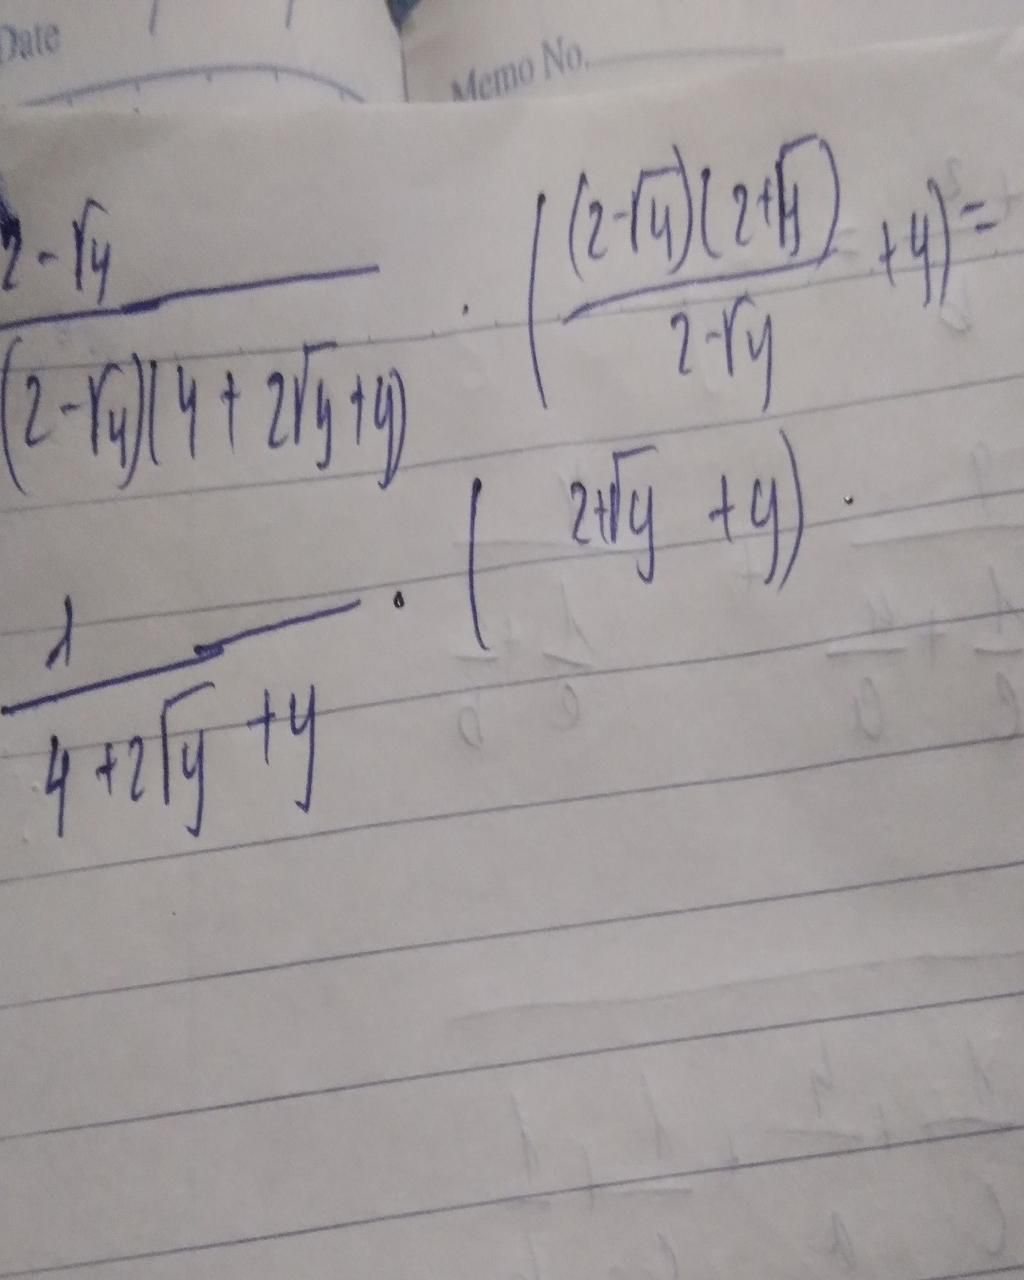 Date
Memo No.
2-√y / (2-√y)(4+2√y+y) · ((2-√y)(2+√y) / 2-√y + y) =
1 / 4+2√y+y · (2+√y + y) ·